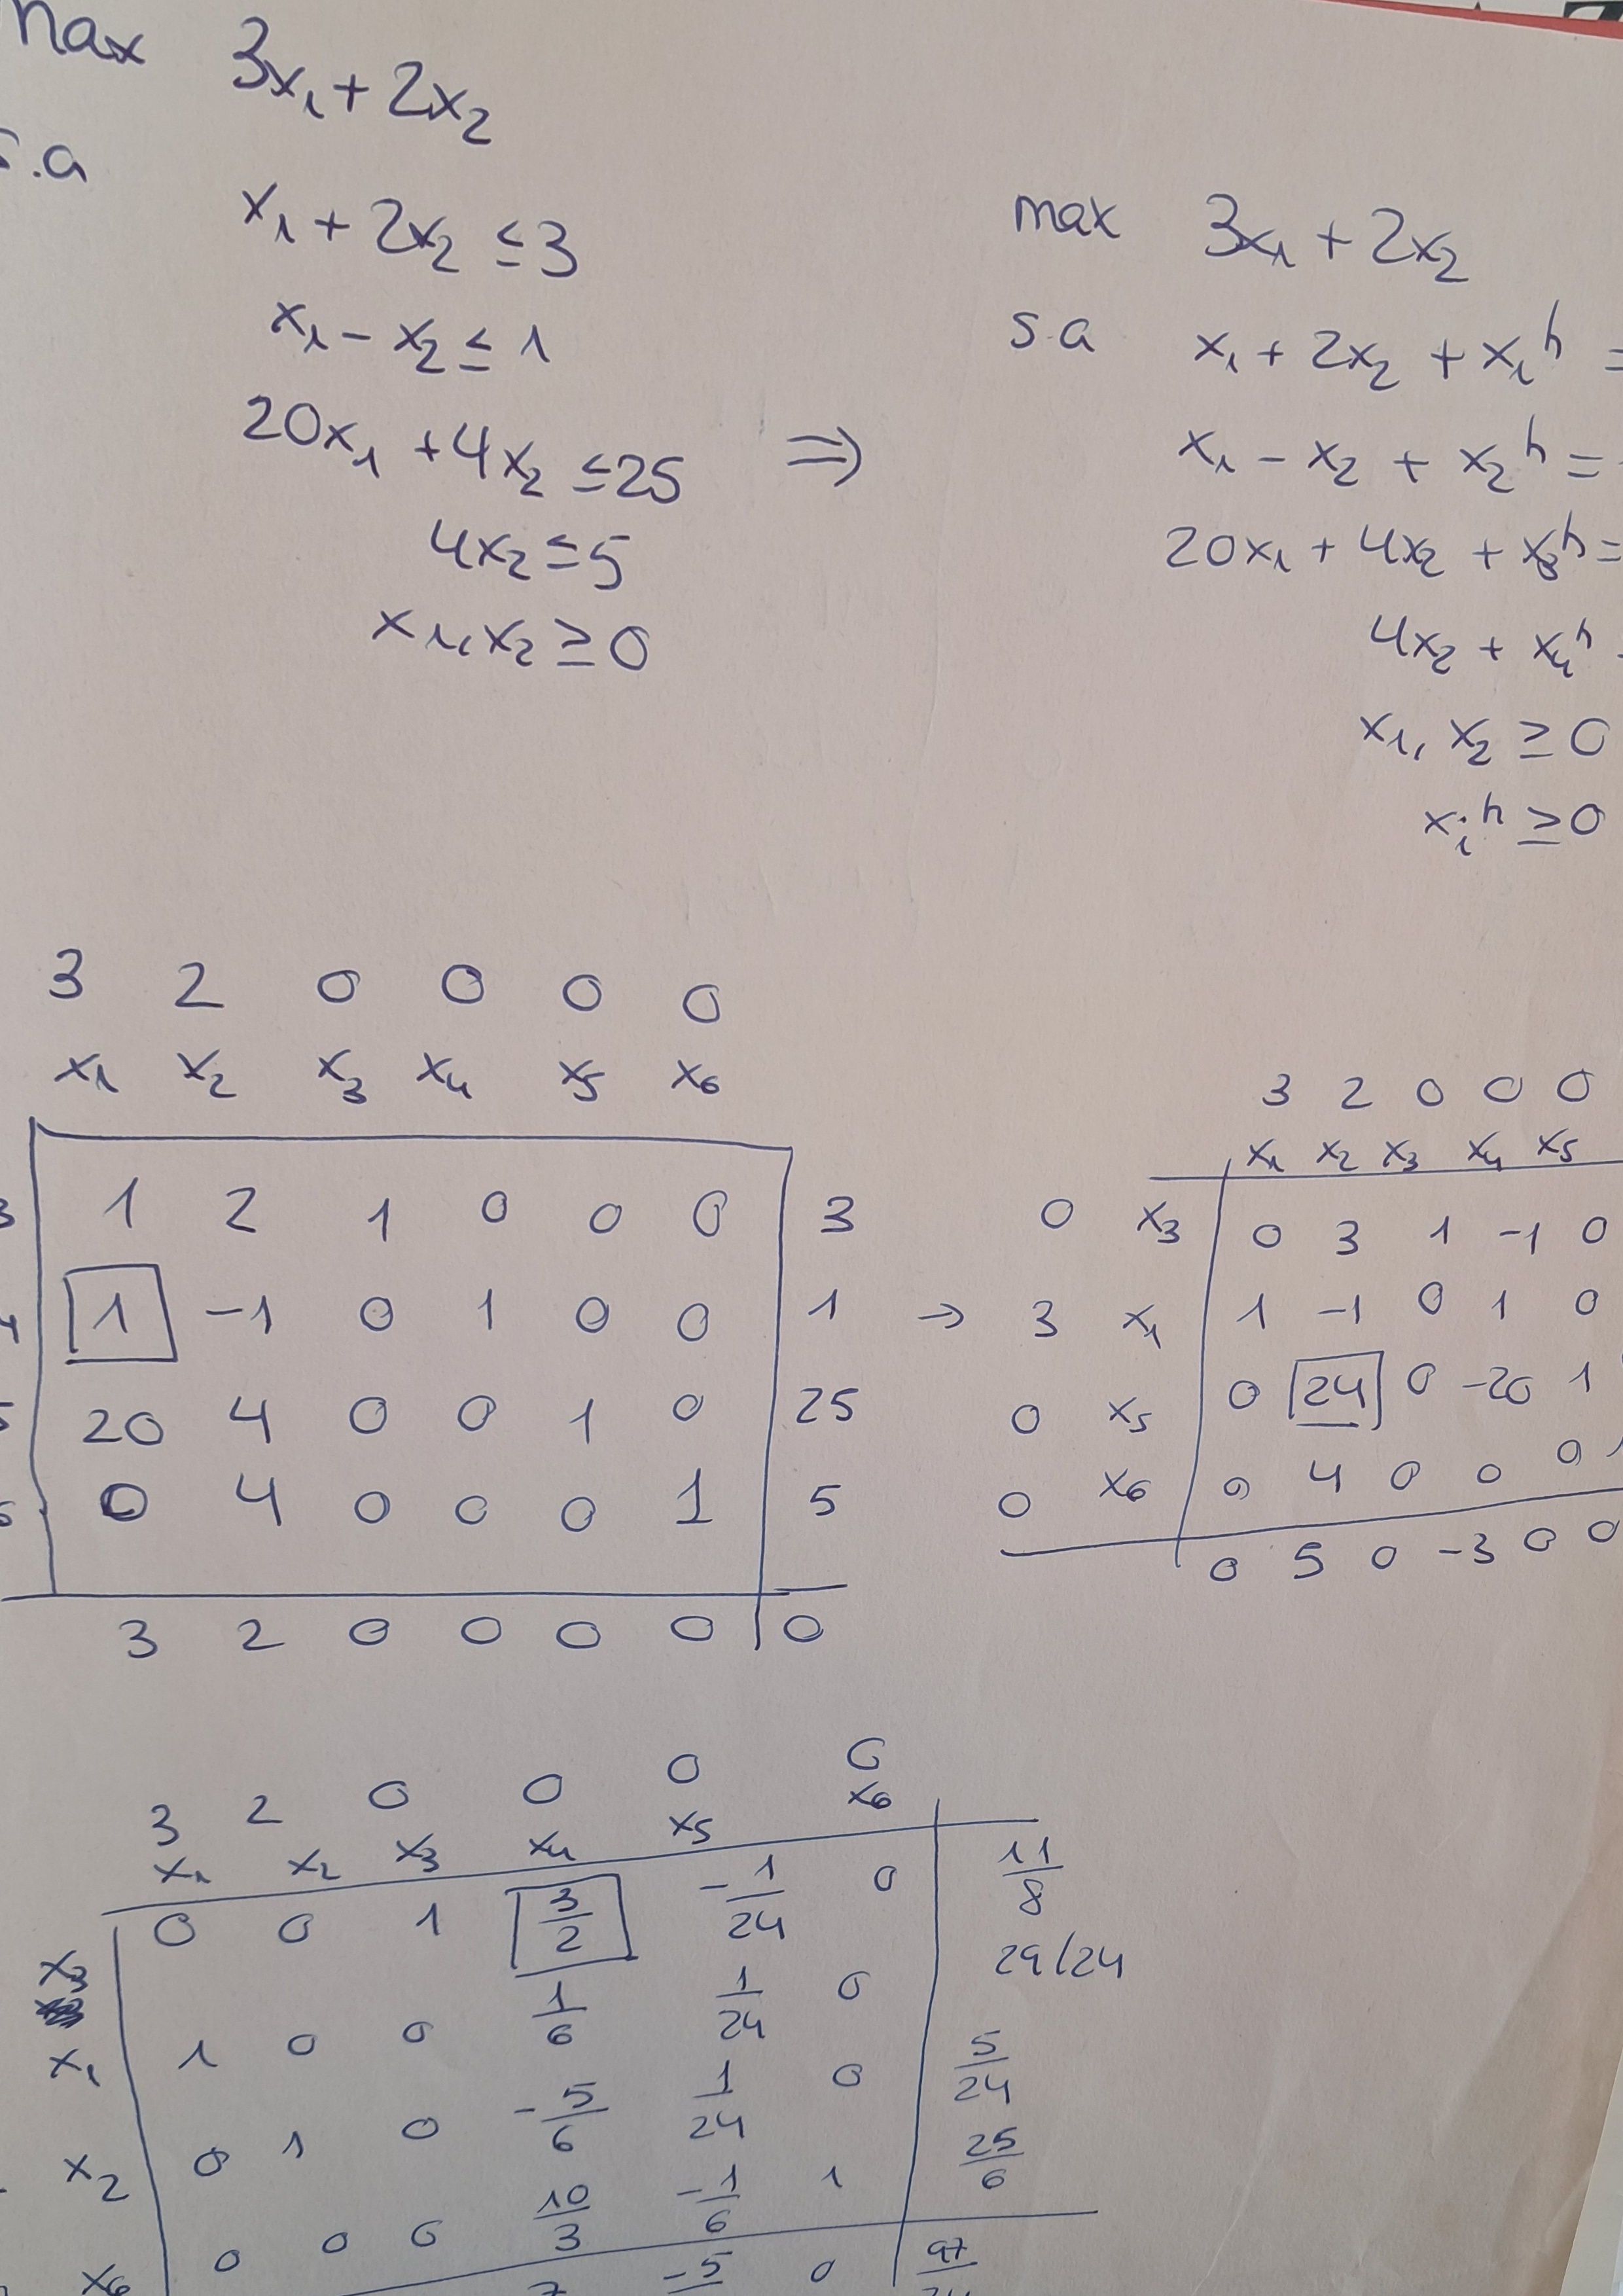 max 3x₁ + 2x₂
s.a
x₁ + 2x₂ ≤ 3
x₁ - x₂ ≤ 1
20x₁ + 4x₂ ≤ 25
4x₂ ≤ 5
x₁, x₂ ≥ 0
⇒
max 3x₁ + 2x₂
s.a x₁ + 2x₂ + x₁ʰ =
x₁ - x₂ + x₂ʰ =
20x₁ + 4x₂ + x₃ʰ =
4x₂ + x₄ʰ
x₁, x₂ ≥ 0
xᵢʰ ≥ 0
3 2 0 0 0 0
x₁ x₂ x₃ x₄ x₅ x₆
3 1 2 1 0 0 0 3
4 1 -1 0 1 0 0 1
5 20 4 0 0 1 0 25
6 0 4 0 0 0 1 5
3 2 0 0 0 0 0
→
3 2 0 0 0
x₁ x₂ x₃ x₄ x₅
0 x₃ 0 3 1 -1 0
3 x₁ 1 -1 0 1 0
0 x₅ 0 24 0 -20 1
0 x₆ 0 4 0 0 0 1
0 5 0 -3 0 0
3 2 0 0 0 0
x₁ x₂ x₃ x₄ x₅ x₆
x₃ 0 0 1 3/2 -1/24 0 11/8
x₁ 1 0 0 1/6 1/24 0 29/24
x₂ 0 1 0 -5/6 1/24 0 5/24
x₆ 0 0 0 10/3 -1/6 1 25/6
7 -5 0 97